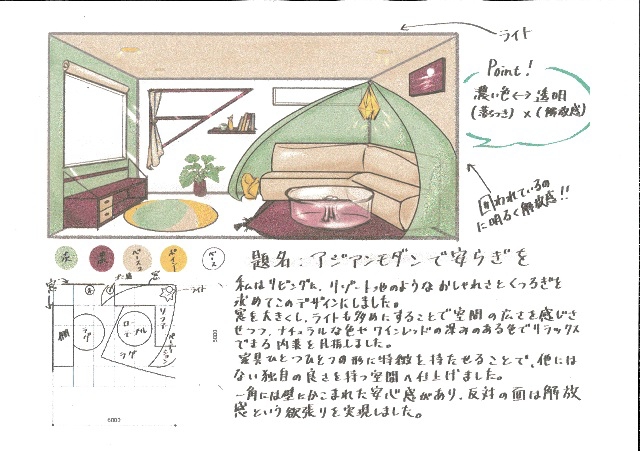 ライト
Point!
濃い色<->透明
(落ちつき) × (解放感)
囲われているの
に明るく解放感!!
題名:アジアンモダンで安らぎを
私はリビングに、リゾート地のようなおしゃれさとくつろぎを
求めてこのデザインにしました。
窓を大きくし、ライトも多めにすることで空間の広さを感じさ
せつつ、ナチュラルな色やワインレッドの深みのある色でリラックス
できる内装を目指しました。
家具ひとつひとつの形に特徴を持たせることで、他には
ない独自の良さを持つ空間へ仕上げました。
一角には壁にかこまれた安心感があり、反対の面は解放
感という欲張りを実現しました。
ベース
窓
ライト
棚
ラグ
ローテーブル
ラグ
ソファ
5000
6000